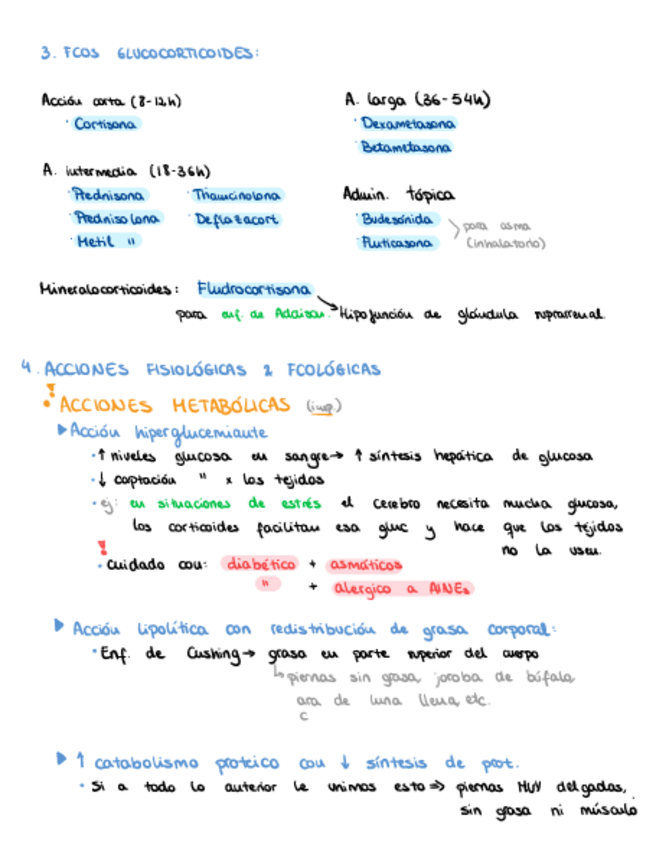 3. FCOS GLUCOCORTICOIDES:
Acción corta (8-12h)
· Cortisona
A. intermedia (18-36h)
· Prednisona · Triamcinolona
· Prednisolona · Deflazacort
· Metil "
A. larga (36-54h)
· Dexametasona
· Betametasona
Admin. tópica
· Budesónida
· Fluticasona
para asma
(inhalatorio)
Mineralocorticoides: Fludrocortisona
para enf. de Addison. → Hipofunción de glándula suprarrenal.
4. ACCIONES FISIOLÓGICAS & FCOLÓGICAS
! • ACCIONES METABÓLICAS (imp.)
▶ Acción hiperglucemiante
· ↑ niveles glucosa en sangre → ↑ síntesis hepática de glucosa
· ↓ captación " x los tejidos
· ej: en situaciones de estrés el cerebro necesita mucha glucosa,
los corticoides facilitan esa gluc y hace que los tejidos
no la usen.
! · Cuidado con: diabético + asmáticos
" + alergico a AINEs
▶ Acción lipolítica con redistribución de grasa corporal:
· Enf. de Cushing → grasa en parte superior del cuerpo
↳ piernas sin grasa, joroba de búfalo,
ara de luna llena, etc.
c
▶ ↑ catabolismo proteico con ↓ síntesis de prot.
· Si a todo lo anterior le unimos esto ⇒ piernas MUY delgadas,
sin grasa ni músculo